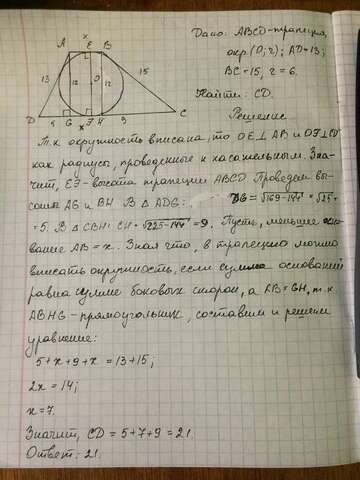 x
A E B
13 12 O 12 15
D 5 G F H 9 C
x
Дано: ABCD-трапеция,
окр.(O; r); AD=13;
BC=15; r=6.
Найти: CD.
Решение
Т.к окружность вписана, то OE⊥AB и OF⊥CD
как радиусы, проведенные к касательным. Зна-
чит, EF-высота трапеции ABCD. Проведем вы-
соты AG и BH. В △ADG: DG=√169-144=√25=
=5. В △CBH: CH=√225-144=9. Пусть, меньшее осно-
вание AB=x. Зная что, в трапецию можно
вписать окружность, если сумма оснований
равна сумме боковых сторон, а AB=GH, т.к
ABHG-прямоугольник, составим и решим
уравнение:
5+x+9+x=13+15;
2x=14;
x=7.
Значит, CD=5+7+9=21.
Ответ: 21.